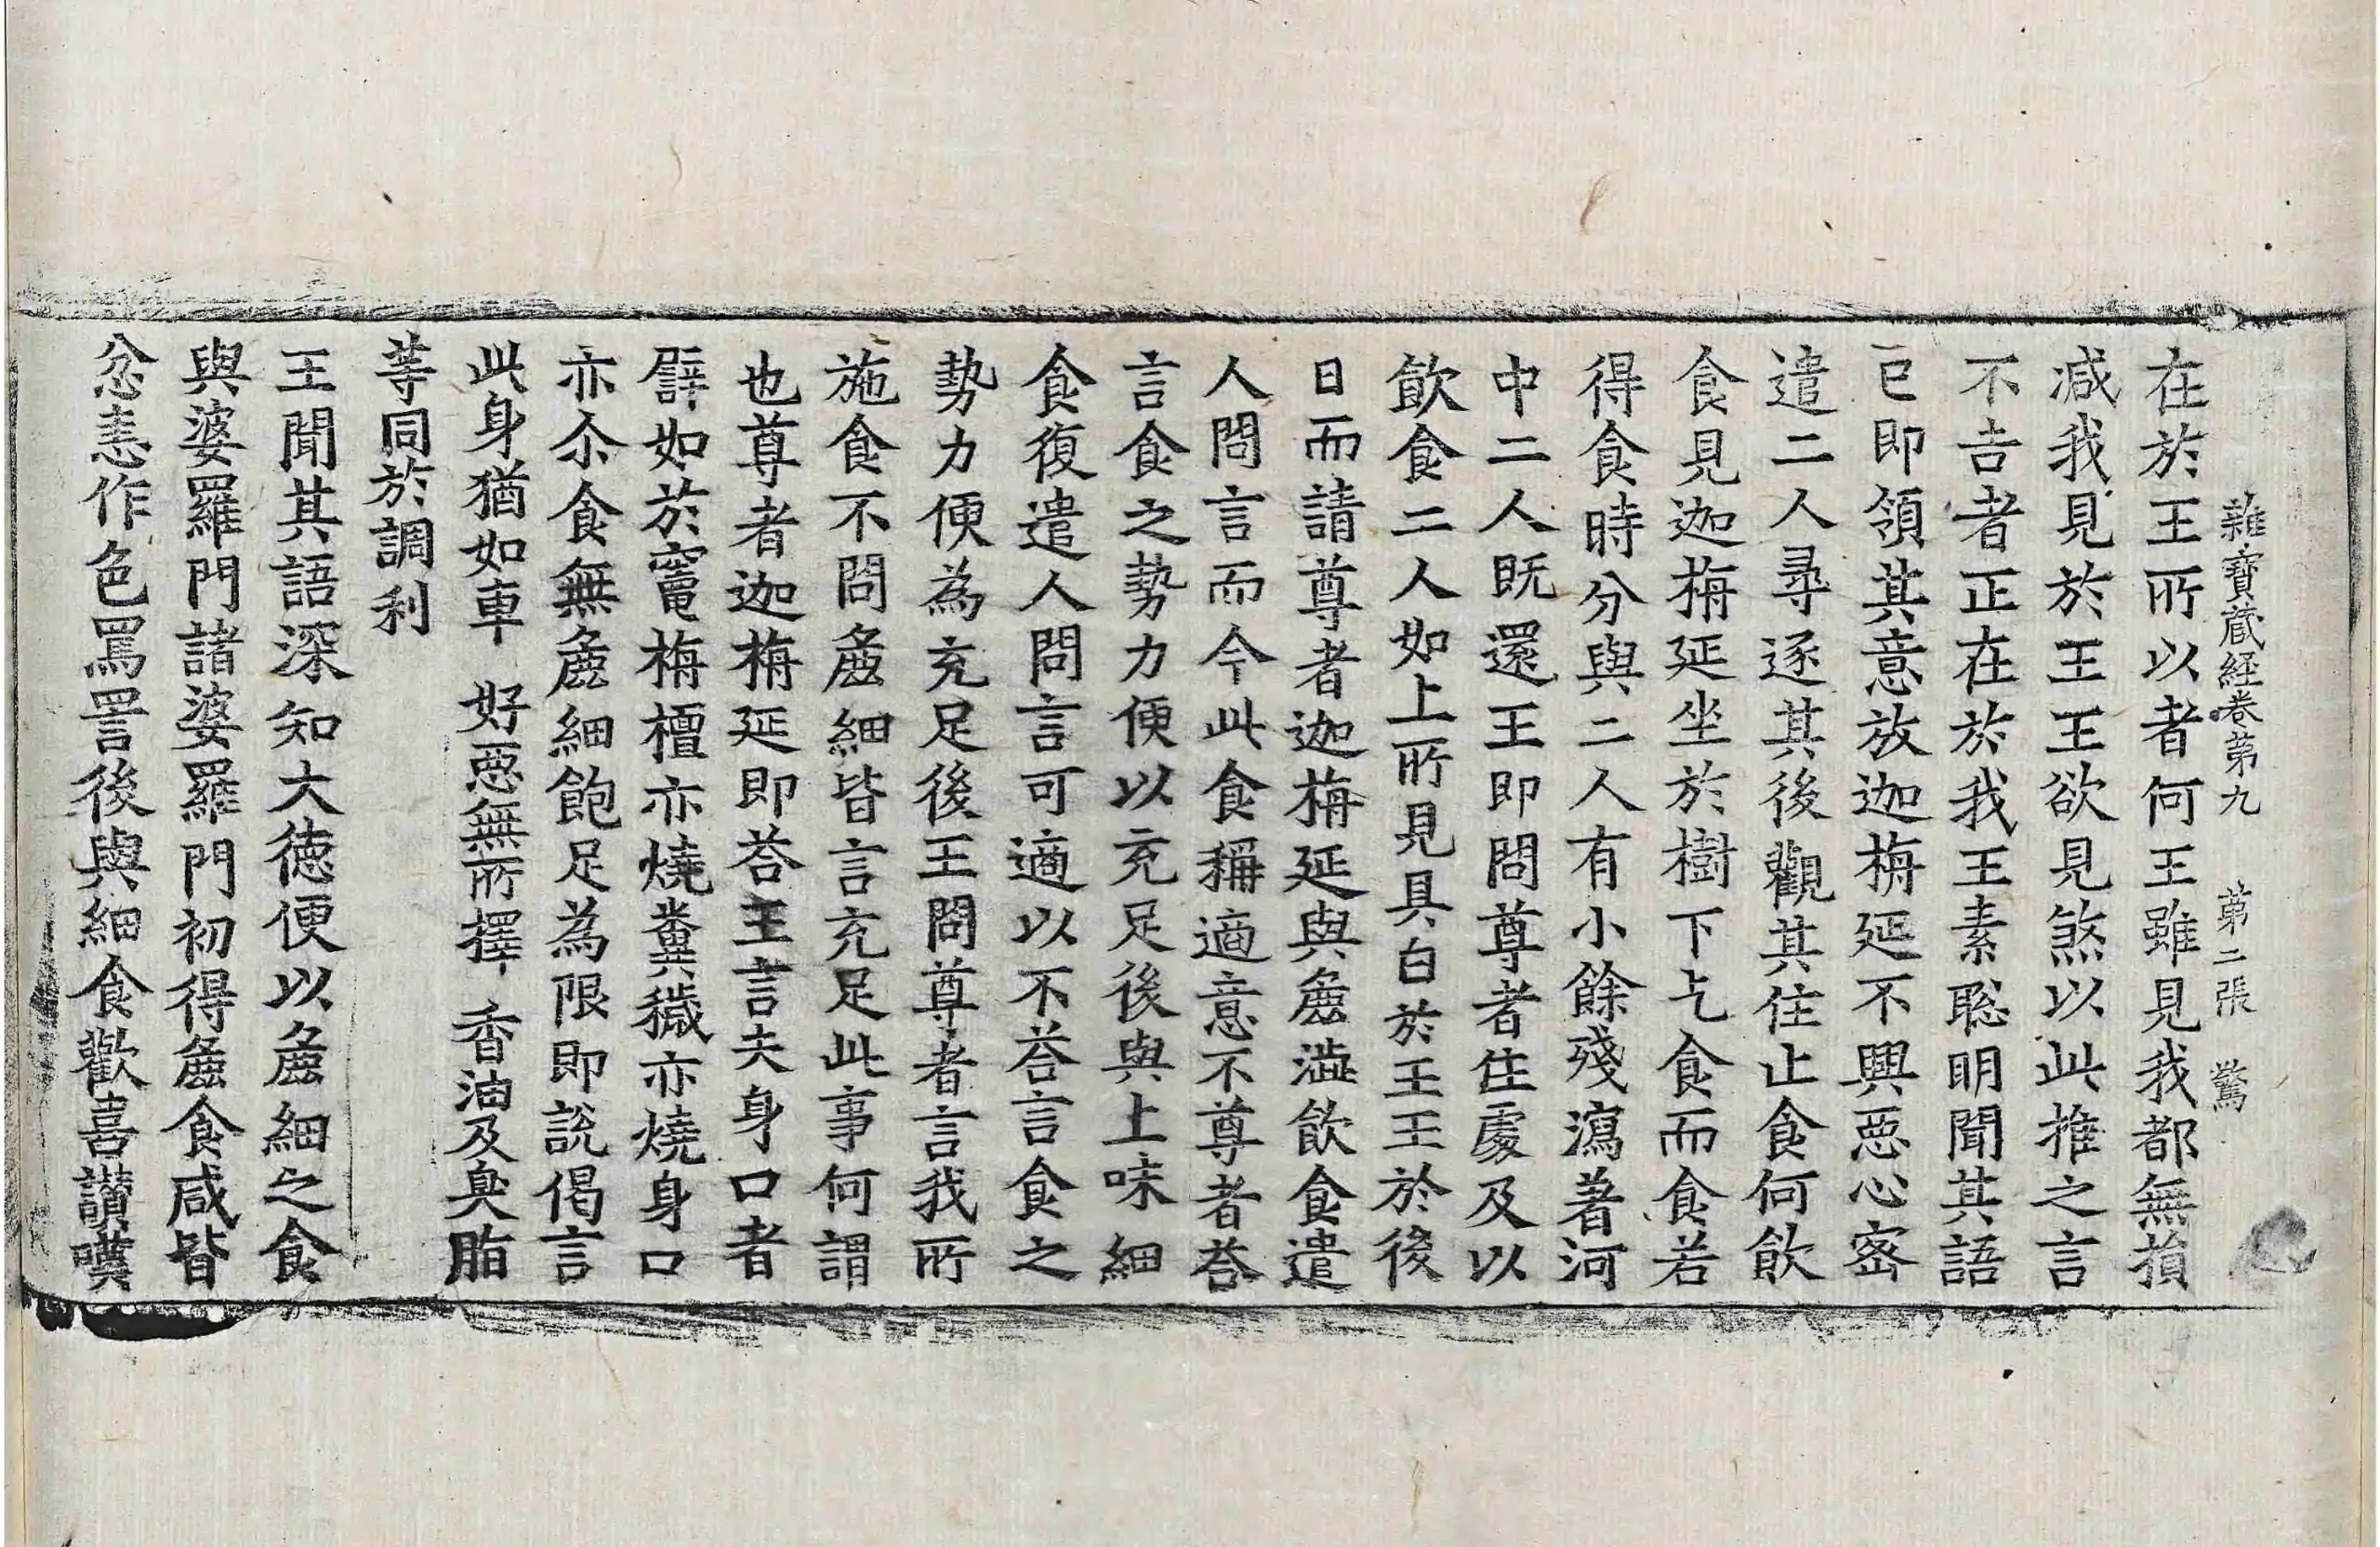 雜寶藏經卷第九 第二張 驚
在於王所以者何王雖見我都無損
減我見於王王欲見煞以此推之言
不吉者正在於我王素聡明聞其語
已即領其意放迦栴延不興惡心密
遣二人尋逐其後觀其住止食何飲
食見迦栴延坐於樹下乞食而食若
得食時分與二人有小餘殘瀉著河
中二人既還王即問尊者住處及以
飲食二人如上所見具白於王王於後
日而請尊者迦栴延與麁澁飲食遣
人問言而今此食稱適意不尊者荅
言食之勢力便以充足後與上味細
食復遣人問言可適以不荅言食之
勢力便為充足後王問尊者言我所
施食不問麁細皆言充足此事何謂
也尊者迦栴延即荅王言夫身口者
譬如於竈栴檀亦燒糞穢亦燒身口
亦尒食無麁細飽足為限即說偈言
此身猶如車 好惡無所擇 香油及臭脂
等同於調利
王聞其語深知大德便以麁細之食
與婆羅門諸婆羅門初得麁食咸皆
忿恚作色罵詈後與細食歡喜讃嘆